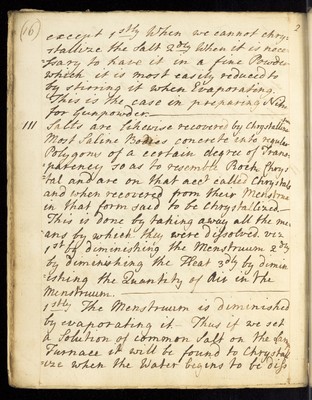 (16)
except 1stly When we cannot chry-
stallize the Salt 2dly When it is nece-
ssary to have it in a fine Powder
which it is most easily reduced to
by stirring it when Evaporating.
This is the case in preparing
for Gunpowder.
III Salts are likewise recovered by
Most Saline Bodies concrete into regular
Polygons of a certain degree of Trans-
parency so as to resemble Rock Chrys-
tal and are on that acct called Chrystals
and when recovered from their
in that form said to be Chrystallized
This is done by taking away all the me-
ans by which they were dissolved viz
1st by diminishing the Menstruum 2dly
by diminishing the Heat 3dly by dimin-
ishing the Quantity of Air in the
Menstruum.
1stly The Menstruum is diminished
by evaporating it - Thus if we set
a Solution of common Salt on the
Furnace it will be found to Chrystal-
ize when the Water begins to be